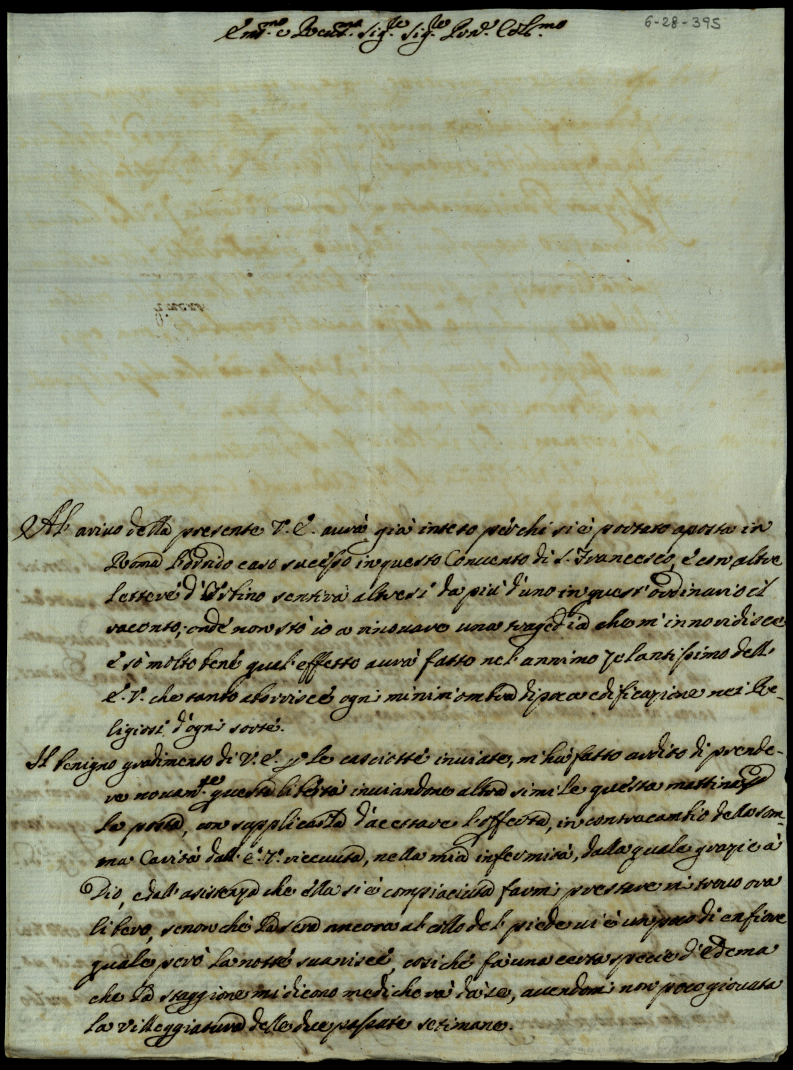 6-28-395
Em.mo e Reud.mo Sig.re Sig.re Pron.e Col.mo
All' arivo della presente V. E. aurà già inteso perchi si è portato aposta in
Roma l'orrido caso sucesso in questo Convento di S. Francesco, e con altre
lettere d'Urbino sentirà altresi da più d'uno in quest'ordinario il
raconto; onde non stò io a rinovare una tragedia che m'innoridisce
e sò molto bene qual'effetto aurà fatto nel' annimo zelantissimo dell'
E. V. che tanto aborrisce ogni minim'ombra di poca edificazione nei Re-
ligiosi d'ogni sorte.
Il benigno gradimento di V. E. p le casciotte inviate, m'hà fatto ardito di prende-
re novam.te questa libertà inviandone altra simile questa mattina p
la posta, con supplicarla d'acettare l'offerta, in contracambio della som-
ma Carità dall' E. V. riceuuta, nella mia infermità, dalla quale grazie à
Dio, e dall' asistenza che ella si è compiaciuta farmi prestare mi trovo ora
libero, se non chè la sera ancora al collo del piede vi è un poco di enfiore
quale però la notte suanisce, cosiché fà una certa specie d'edema
che la staggione mi dicono mediche rà da se, avendomi non poco giovata
la villeggiatura delle due passate setimane.